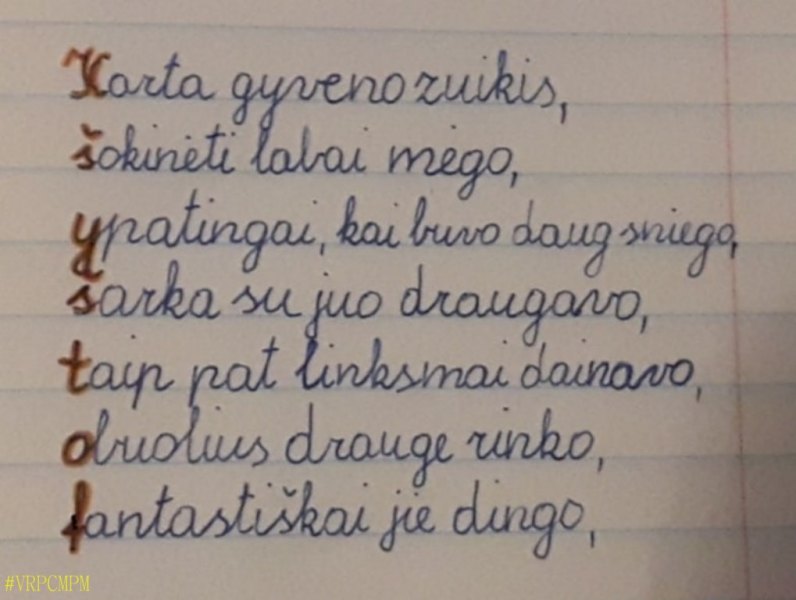 Karta gyveno zuikis,
šokinėti labai mėgo,
ypatingai, kai buvo daug sniego,
šarka su juo draugavo,
taip pat linksmai dainavo,
obuolius drauge rinko,
fantastiškai jie dingo,
#VRPCMPM